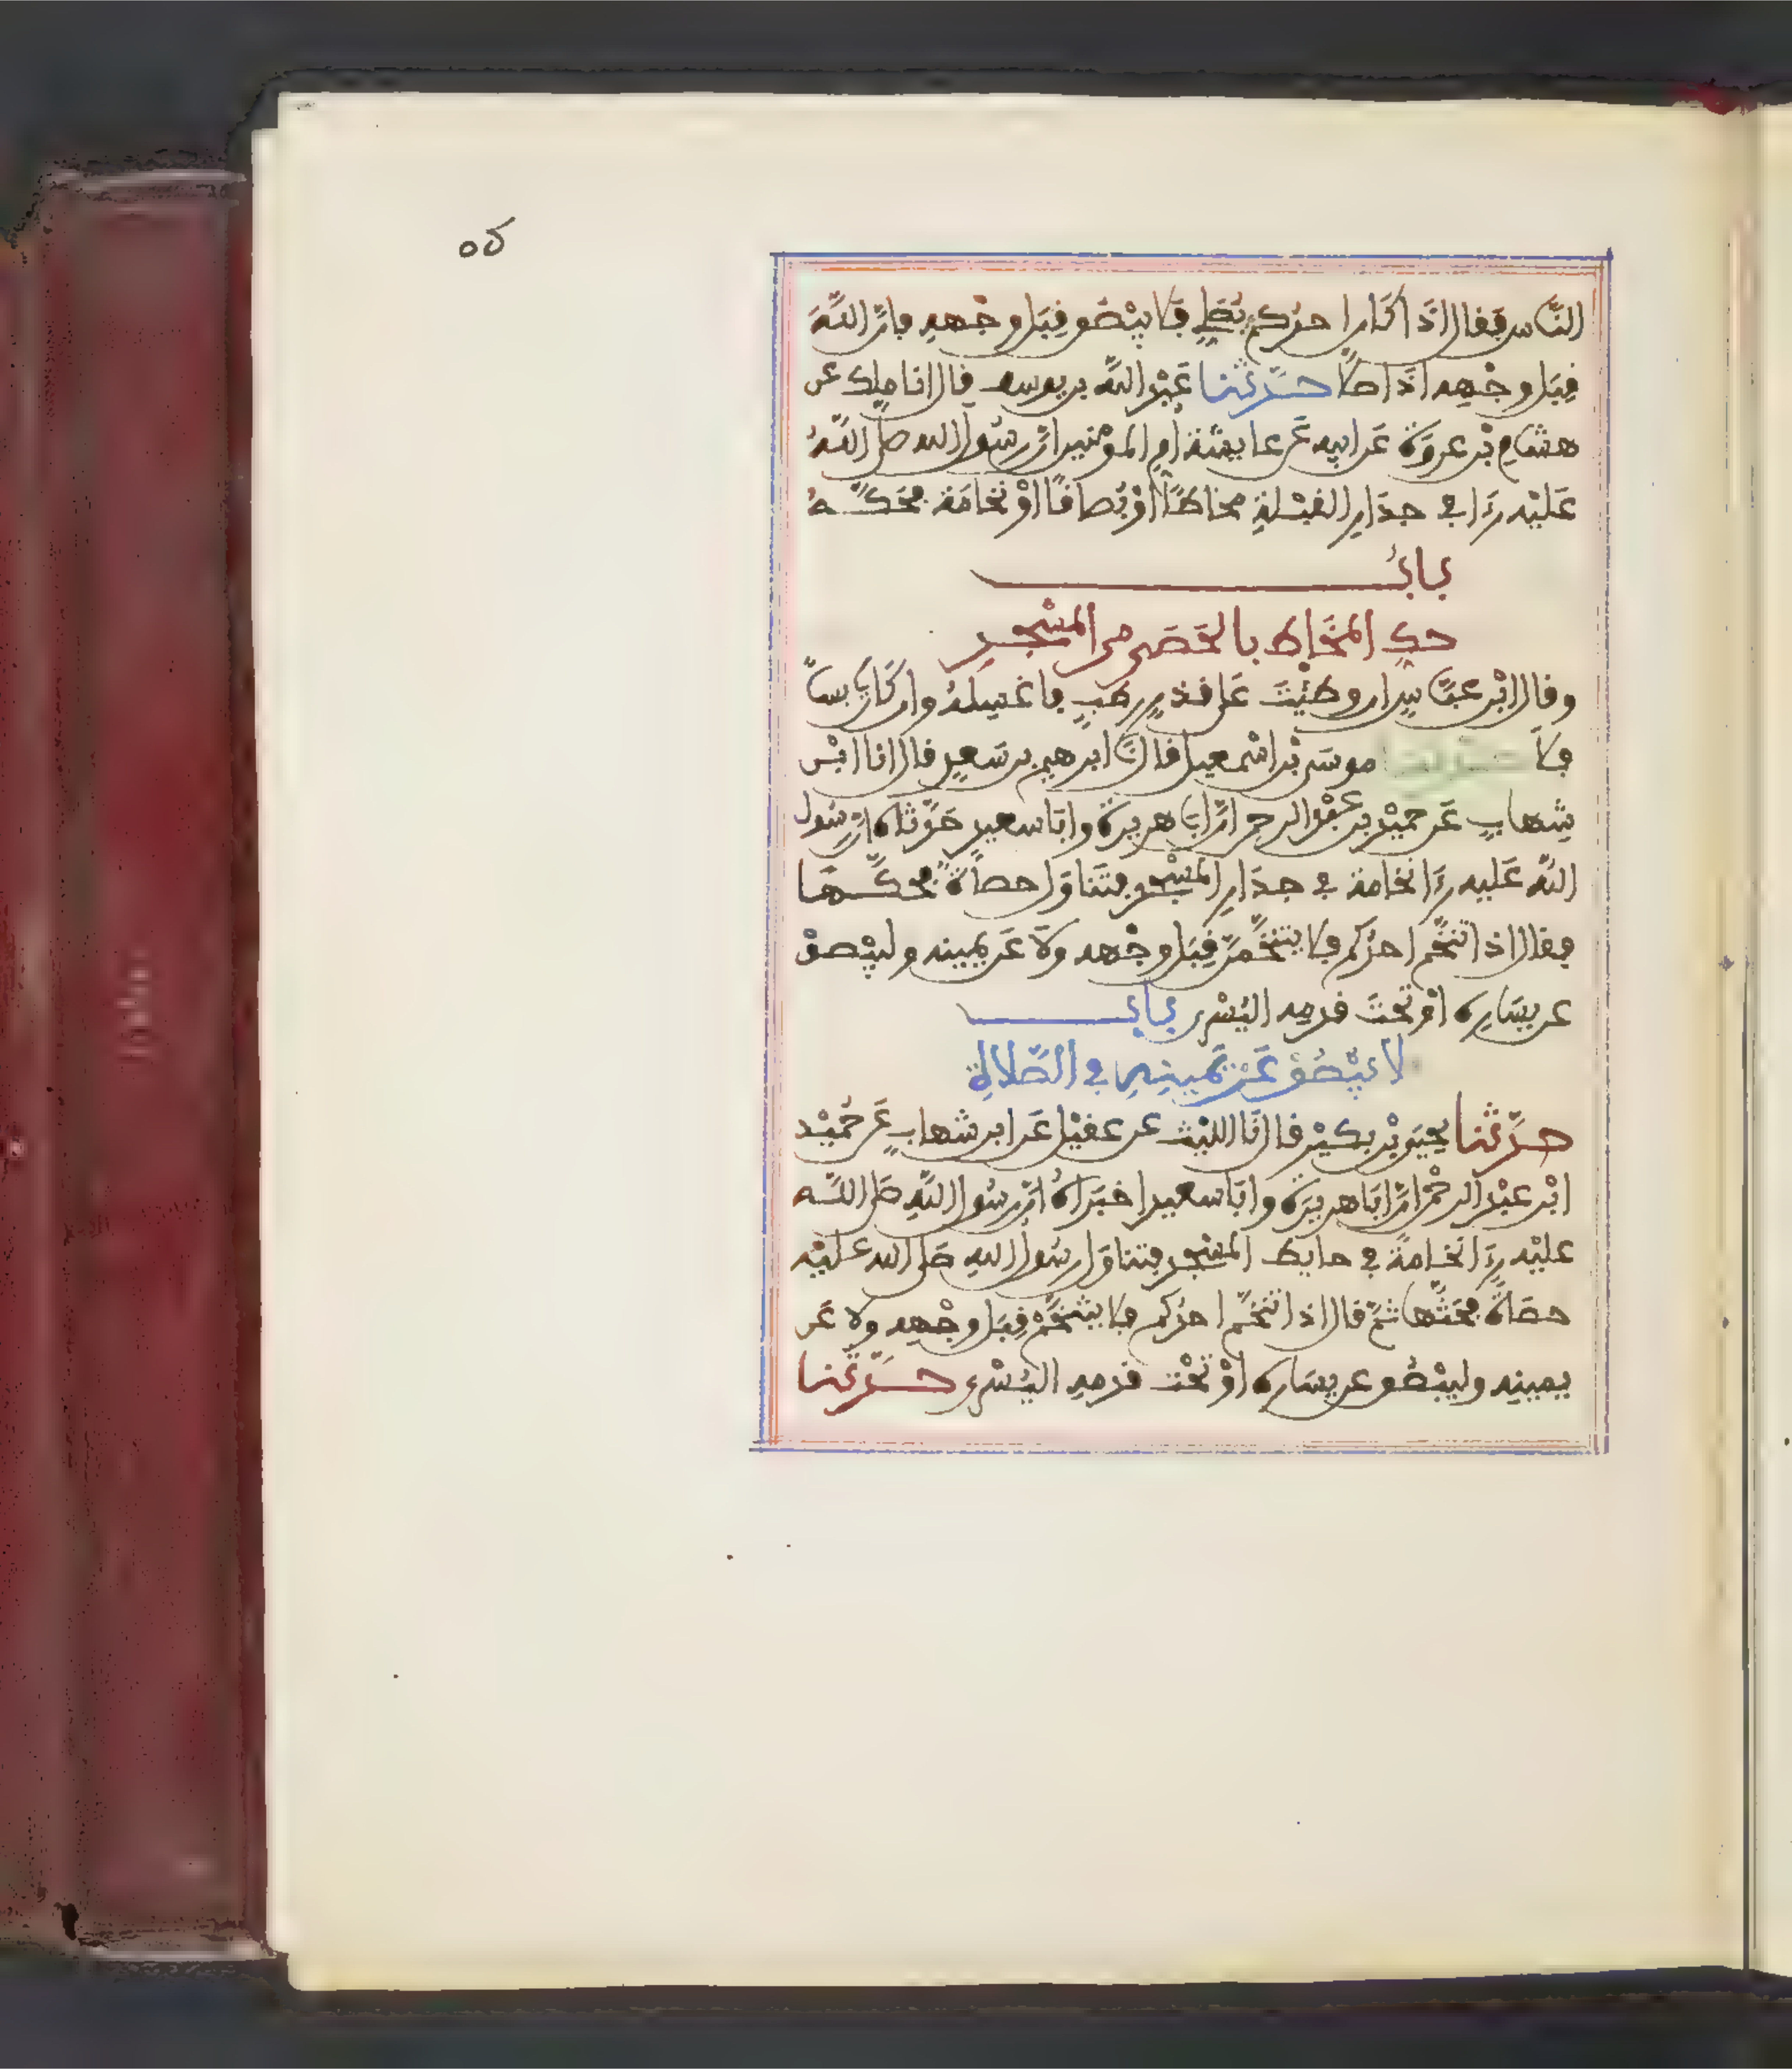 النَّاس فَقال اذَا كَان احدُكم يُصَلِّي فَلا يبْصُق قِبَل وجْهه فإنَّ اللَّهَ
قِبَل وجْهِه اذَا صلَّى حــدَّثنا عَبْد اللَّه بن يوسف قال انا ملك عن
هشام بْن عروَة عَن ابيه عَن عايشة أم المومنين انَّ رسُول الله صلى اللَّهُ
عَلَيْه رَءَا في جدَارِ القبْلةِ مخاطًا اوْ بُصاقًا اوْ نخامَة فحَكَّــهُ
بابُ
حكِّ المخَاطِ بالحَصَى من المسْجِدِ
وقال ابْن عبَّاسٍ ان وطئْتَ عَلى قذرٍ رطبٍ فاغسِلْهُ وان كَان يابساً
فلَا حــدثنا موسَى بْن اسْمعيل قال نَا ابرهيم بن سَعدٍ قال انا ابْن
شهابٍ عَن حميْد بن عبْد الرحمن انَّ ابَا هريرة وابَا سعيدٍ حَدَّثاه انَّ رسُول
اللَّه عَليه رَءَا نخامة في جدَارِ المسْجد فتَناوَل حصاةً فحكَّــهَا
فقال اذا تنخَّم احدُكم فلا يتنخَّمنَّ قِبَل وجْهه ولَا عَن يمينه وليبْصقْ
عن يسَارِه اوْ تحْتَ قدمِه اليُسْرى بابُ
لا يَبْصُقْ عَنْ يَمينِهِ في الصَّلاةِ
حــدَّثنا يحيَى بْن بكيْر قال نَا الليْث عن عقيْل عَن ابن شهابٍ عَن حُميْد
ابْن عبْد الرحْمن انَّ ابَا هريرَة وابَا سعيد اخبَرَاهُ انَّ رسُول اللَّهِ صَلى اللَّــه
عليْه رَءَا نخَامةً في حايط المسْجِد فتناوَل رسُول اللهِ صَلى الله عليْه
حصَاةً فحَتَّها ثمَّ قال اذا تنخَّم احدُكم فلا يتنخَّمْ قِبَل وجْهِه ولا عَن
يمينِه وليبْصُق عن يسَاره اوْ تحْت قدمِه اليُسْرى حــدَّثنا